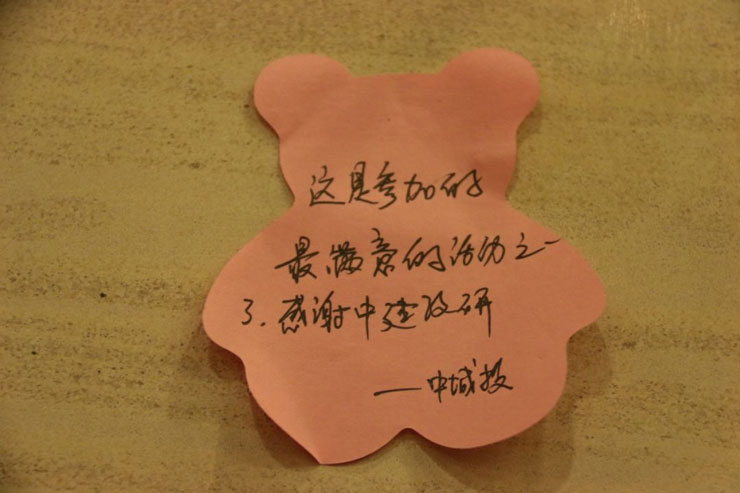 这是参加的
最满意的活动之一
了,感谢中建政研
——中城投